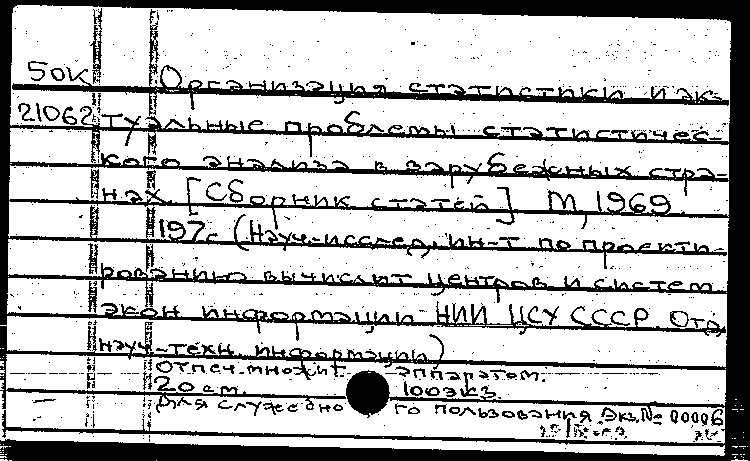 50К Организация статистики и ак-
21062 туальные проблемы статистичес-
кого анализа в зарубежных стра-
нах. [Сборник статей] М, 1969.
197с (Науч.-исслед. ин-т по проекти-
рованию вычислит центров и систем
экон информации НИИ ЦСУ СССР. Отд
науч-техн. информации)
Отпеч. множит. аппаратом.
20 см. 100экз.
Для служебно го пользования Экз.№ 00006